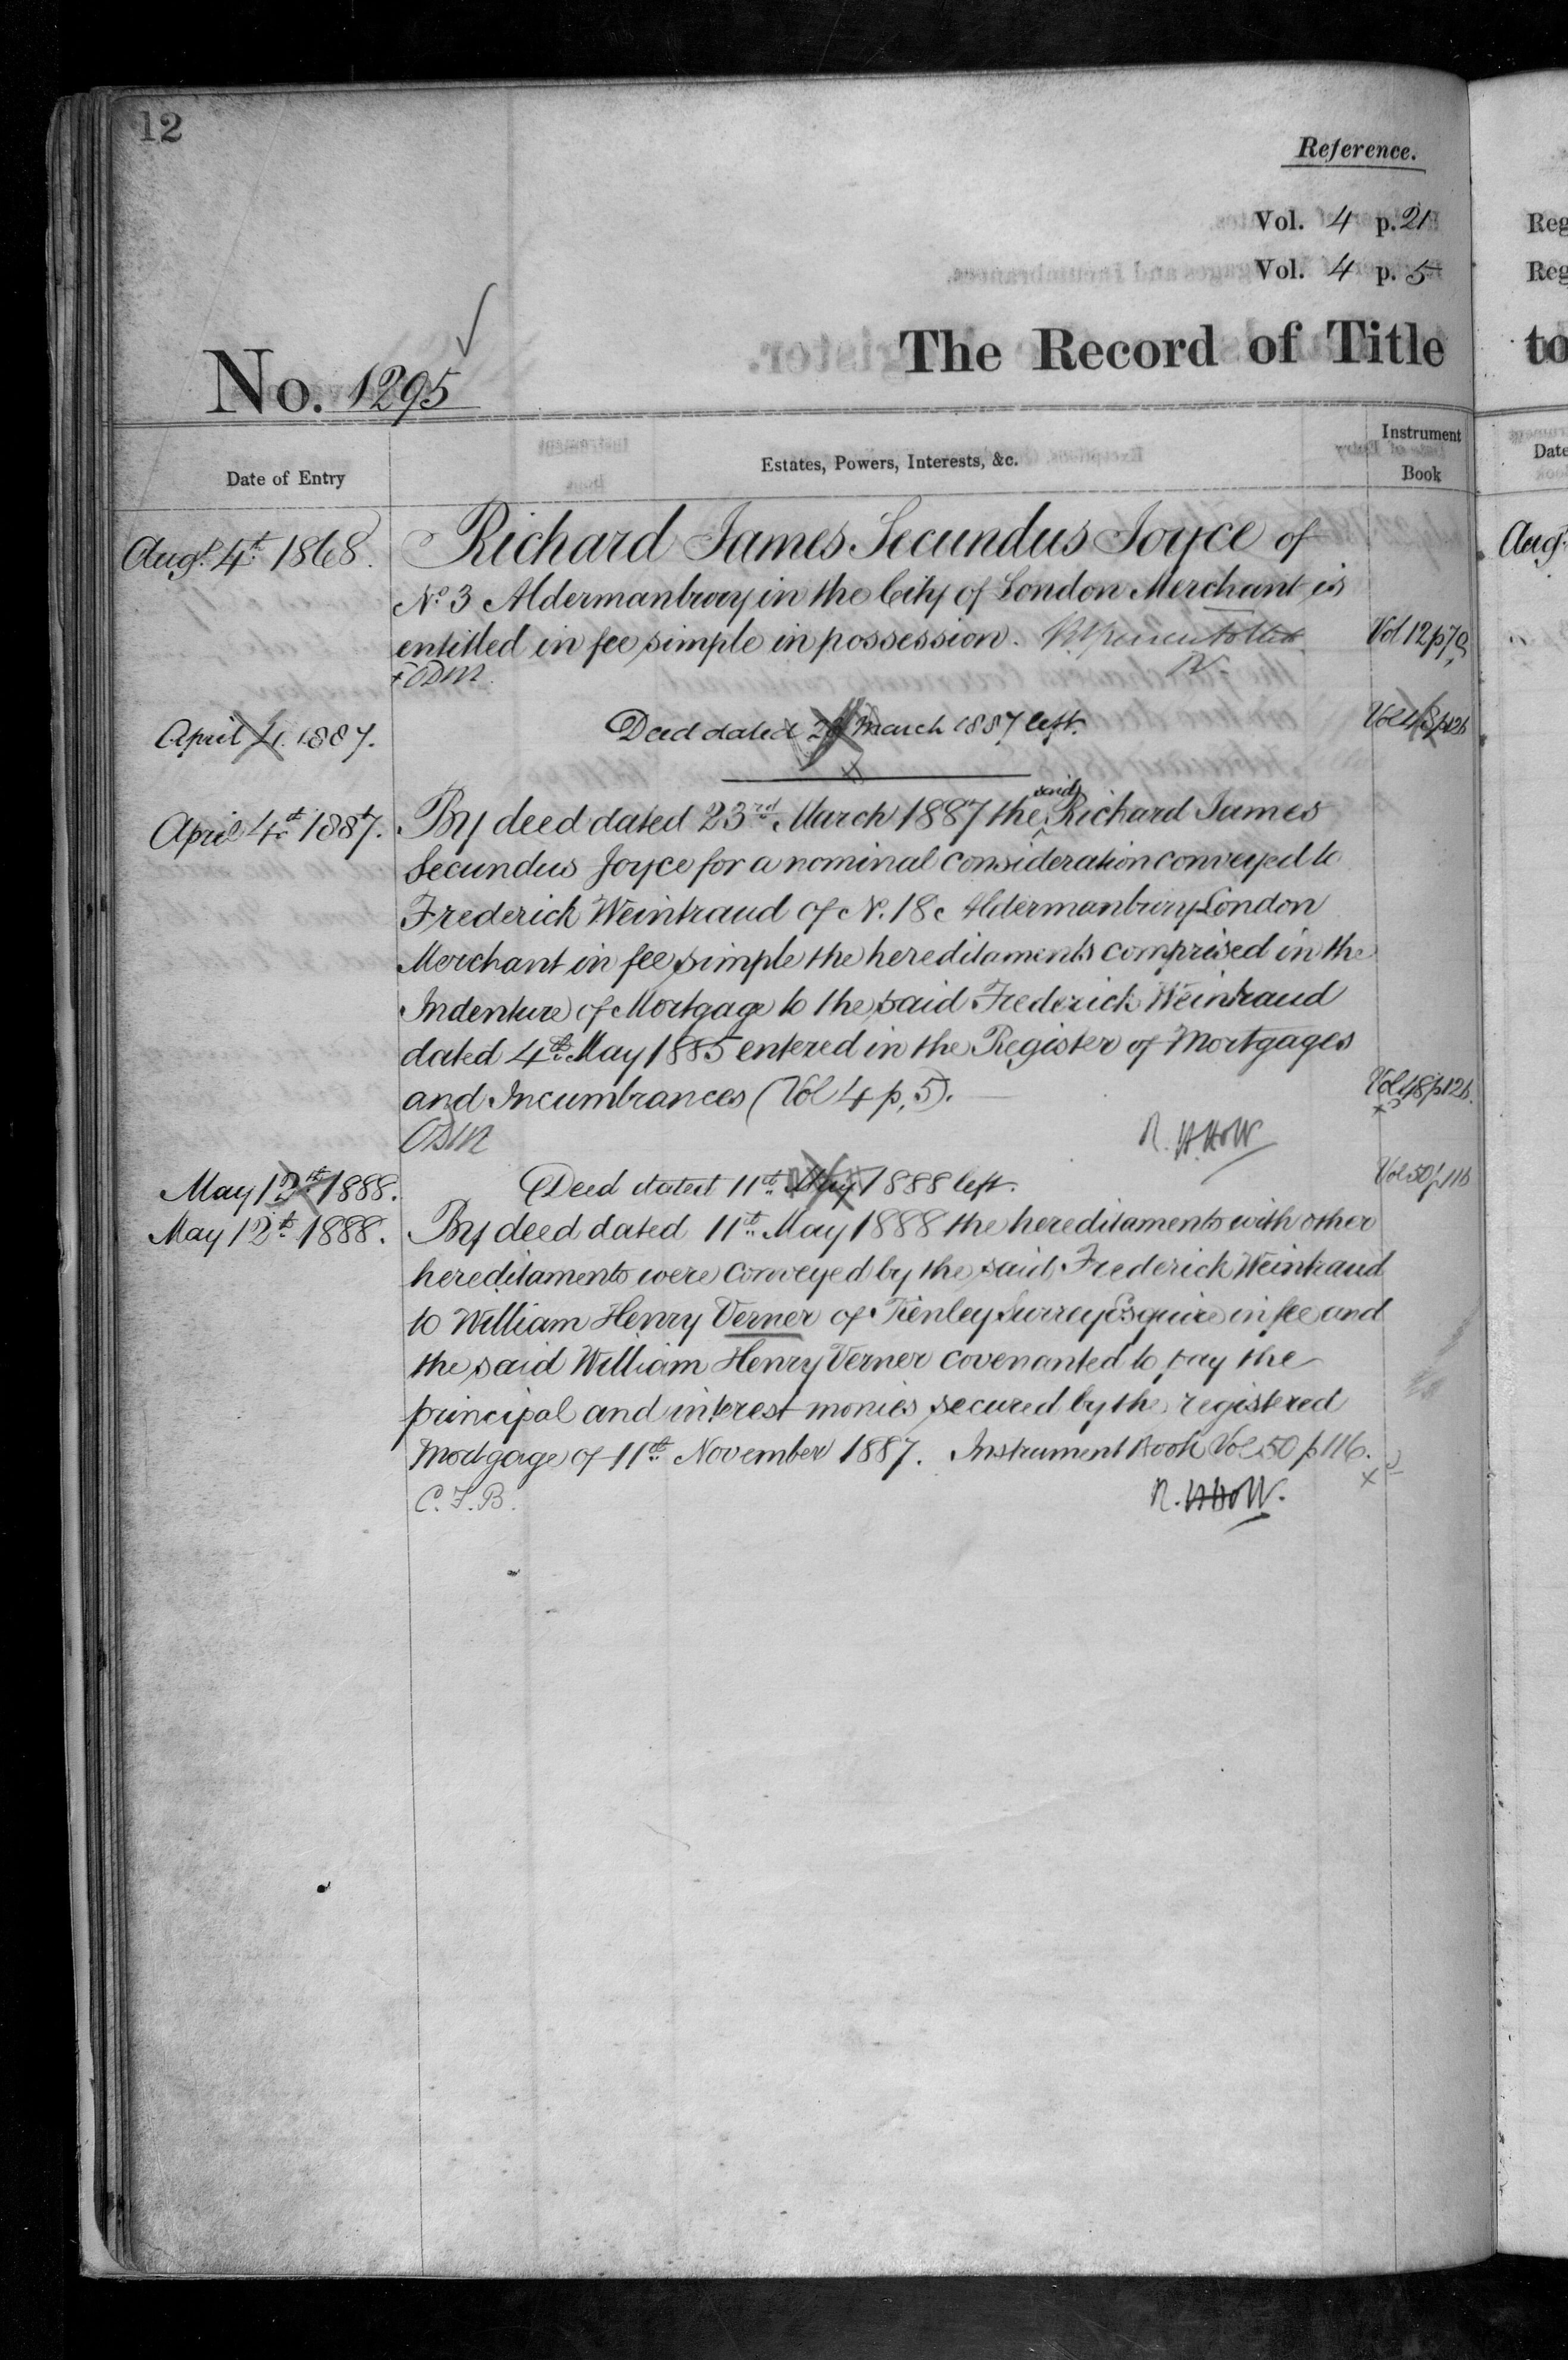 12
Reference.
Vol. 4 p. 21
Vol. 4 p. 5
No. 1295
The Record of Title
Date of Entry
Estates, Powers, Interests, &c.
Instrument Book
Augt. 4th 1868.
Richard James Secundus Joyce of
No 3 Aldermanbury in the City of London Merchant is
entitled in fee simple in possession.
Vol 12 p 70
ODM
April 4. 1887.
Deed dated 23 March 1887 left.
Vol 48 p 126
April 4th 1887.
By deed dated 23rd March 1887 the said Richard James
Secundus Joyce for a nominal consideration conveyed to
Frederick Weintraud of No. 18c Aldermanbury London
Merchant in fee simple the hereditaments comprised in the
Indenture of Mortgage to the said Frederick Weintraud
dated 4th May 1885 entered in the Register of Mortgages
and Incumbrances (Vol 4 p. 5).
Vol 48 p 126.
ODM
R. H. Holt
May 12th 1888.
Deed dated 11th May 1888 left.
Vol 50 p 116
May 12th 1888.
By deed dated 11th May 1888 the hereditaments with other
hereditaments were conveyed by the said Frederick Weintraud
to William Henry Verner of Kenley Surrey Esquire in fee and
the said William Henry Verner covenanted to pay the
principal and interest monies secured by the registered
Mortgage of 11th November 1887. Instrument Book Vol 50 p 116.
C. F. B.
R. H. Holt.
Reg
Reg
to
Date
Aug.